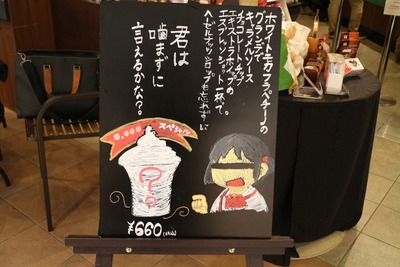 ホワイトモカフラペチーノの
グランデで
キャラメルソース
チョコレートチップ
エキストラホイップの
エスプレッソショット一杯で。
ヘーゼルナッツシロップも忘れずに
君は
噛まずに
言えるかな？
スペシャル
?
¥660